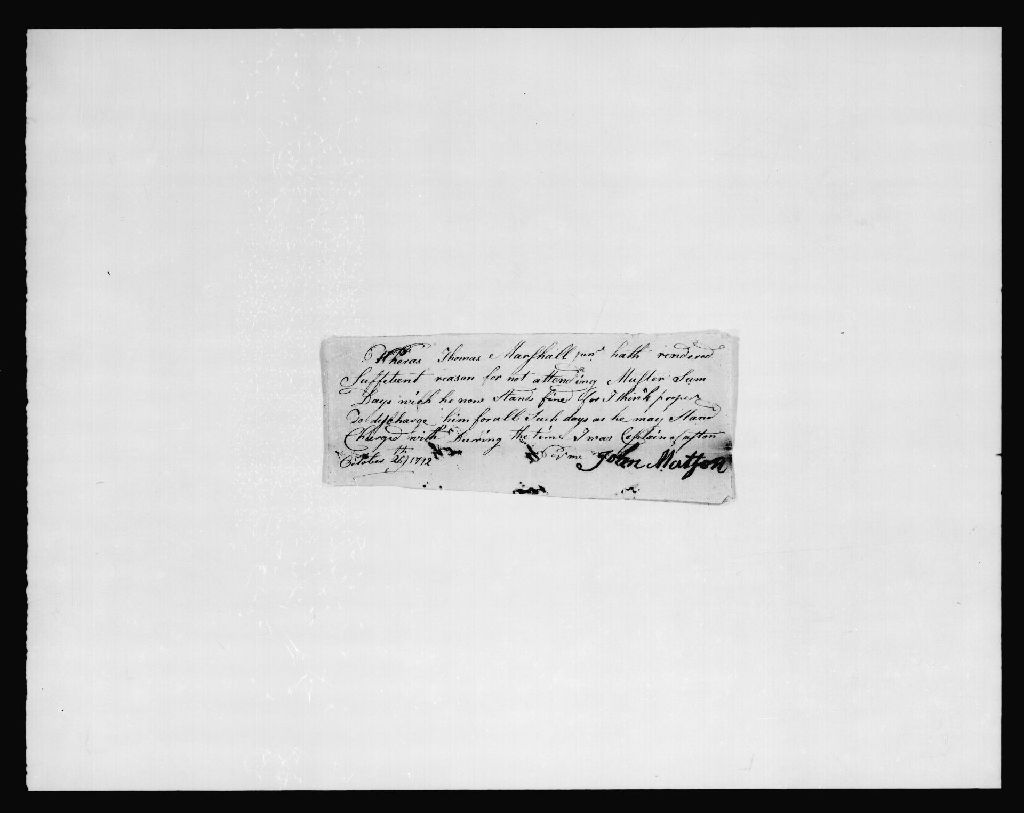 Wheras Thomas Marshall junr hath rendered
Suffetiant reason for not attending Muster Sum
Days wich he now Stands fined for I think proper
To discharge him for all Such days as he may Stand
Charged with During the time I was Captain
October 1792 Pr me John Matson